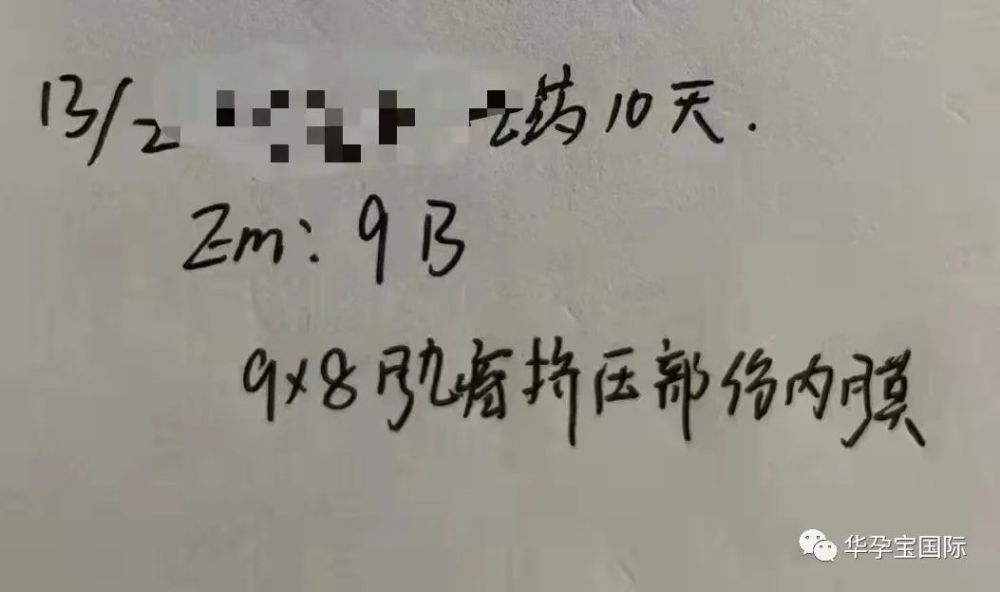 13/2 药10天.
Em: 9 B
9×8肌瘤挤压部份内膜
华孕宝国际